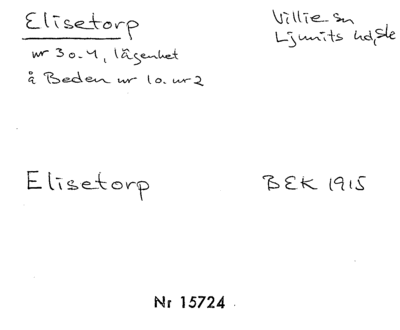 Elisetorp
nr 3 o. 4, lägenhet
å Beden nr 1 o. nr 2
Villie sn
Ljunits hd, Sk
Elisetorp
BEK 1915
Nr 15724